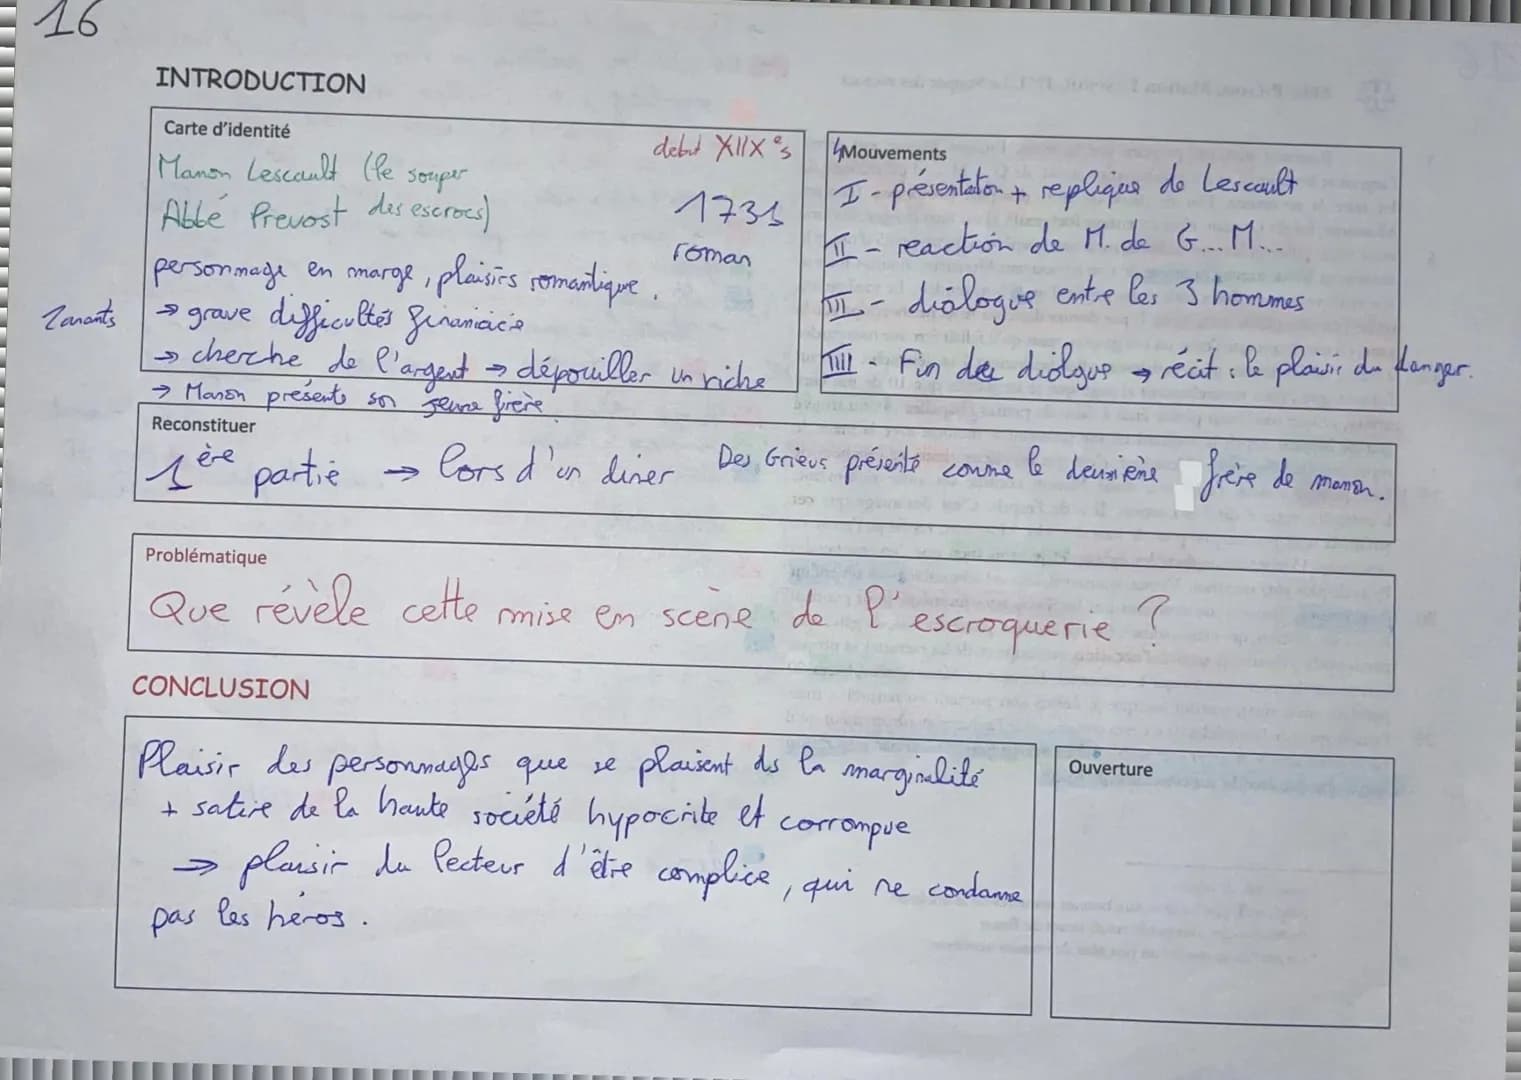 16
INTRODUCTION
Carte d'identité
debut XIIX es
Manon Lescault (le souper
des escrocs)
Abbé Prevost
1731
roman
personnage en marge, plaisirs romantique.
2 amants
→ grave difficultés financière
→ cherche de l'argent → dépouiller un riche
→ Manon présente son jeune frère
4 Mouvements
I - présentation + replique de Lescault
II - reaction de M. de G... M...
III - dialogue entre les 3 hommes
IIII - Fin du dialogue → récit : le plaisir du danger.
Reconstituer
1ère partie → lors d'un diner Des Grieux présenté comme le deuxième frère de manon.
Problématique
Que révèle cette mise en scène de l'escroquerie ?
CONCLUSION
Plaisir des personnages que se plaisent ds la marginalité
+ satire de la haute société hypocrite et corrompue
→ plaisir du lecteur d'être complice, qui ne condamne
pas les héros.
Ouverture